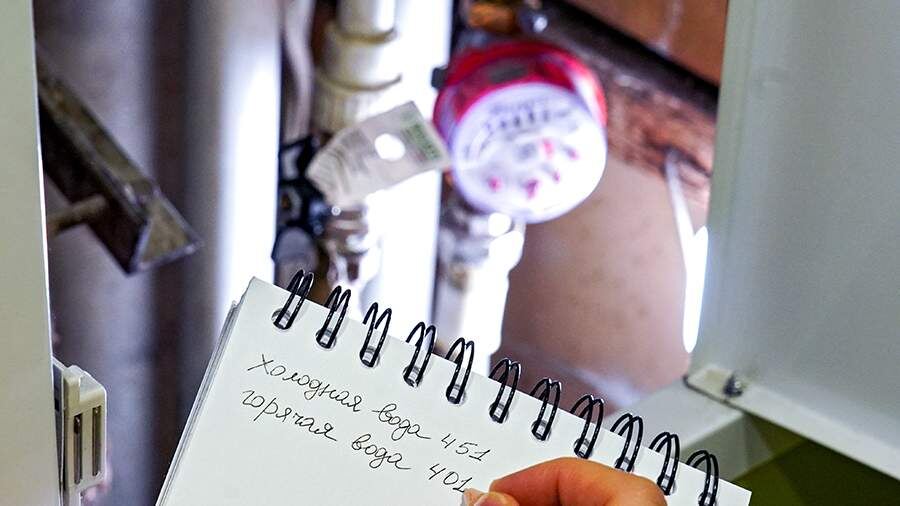 Холодная вода 451
горячая вода 401